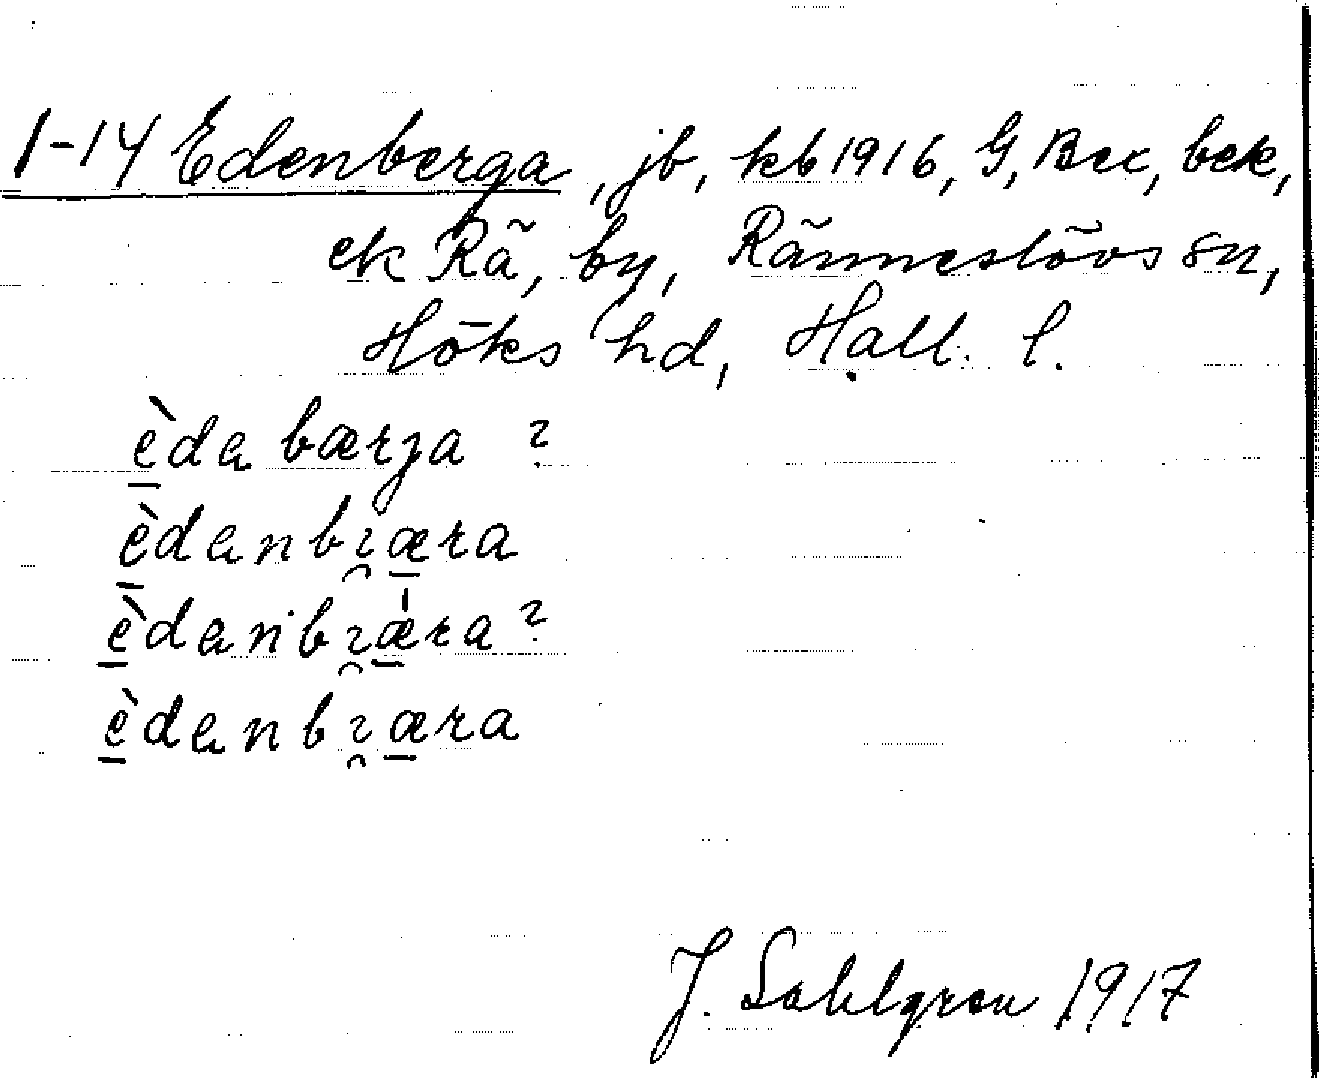 1-14 Edenberga, jb, kb 1916, G, Bex, bek,
ek Rä, by, Ränneslövs sn,
Höks hd, Hall. l.
èda bærja ?
èdanbi̯æra
èdanbi̯æra ?
èdanbi̯æra
J. Sahlgren 1917